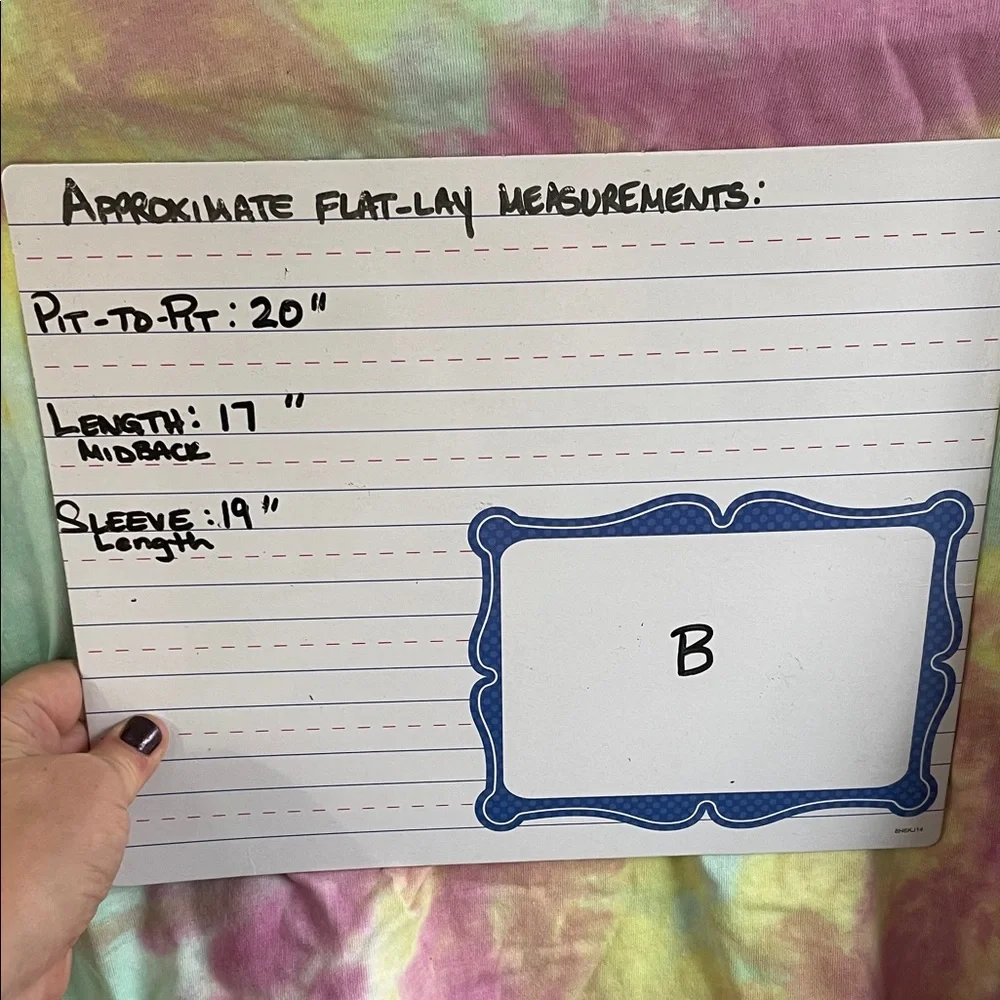 APPROXIMATE FLAT-LAY MEASUREMENTS:
PIT-TO-PIT: 20"
LENGTH: 17 "
MIDBACK
SLEEVE: 19"
Length
B